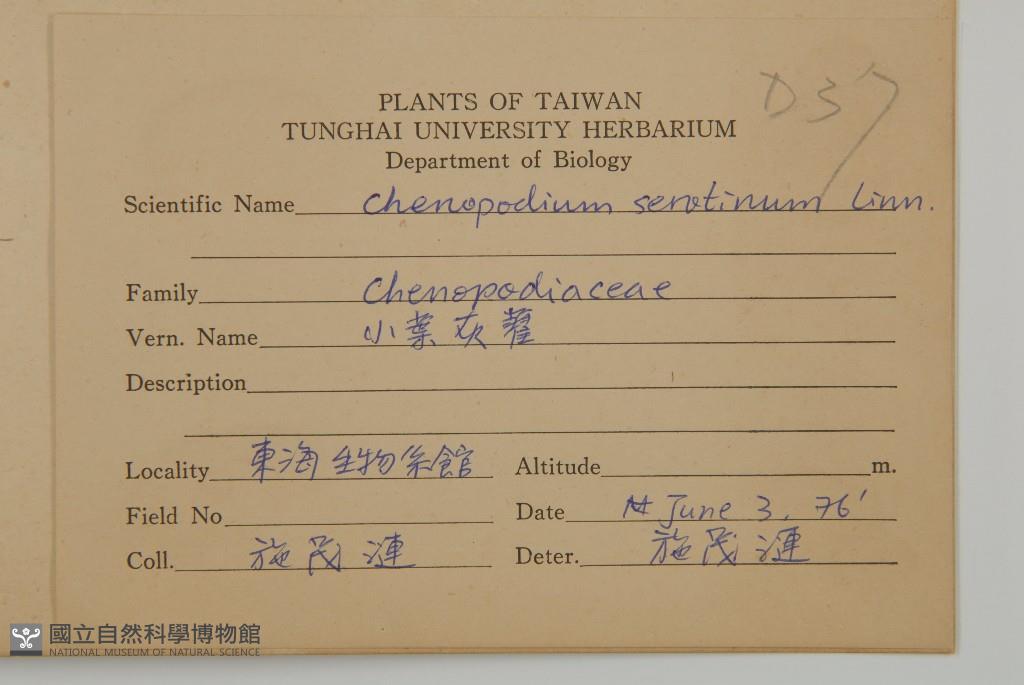 D37
PLANTS OF TAIWAN
TUNGHAI UNIVERSITY HERBARIUM
Department of Biology
Scientific Name Chenopodium serotinum Linn.
Family Chenopodiaceae
Vern. Name 小葉灰藋
Description
Locality 東海生物系館 Altitude m.
Field No Date June 3, 76'
Coll. 施茂漣 Deter. 施茂漣
國立自然科學博物館
NATIONAL MUSEUM OF NATURAL SCIENCE